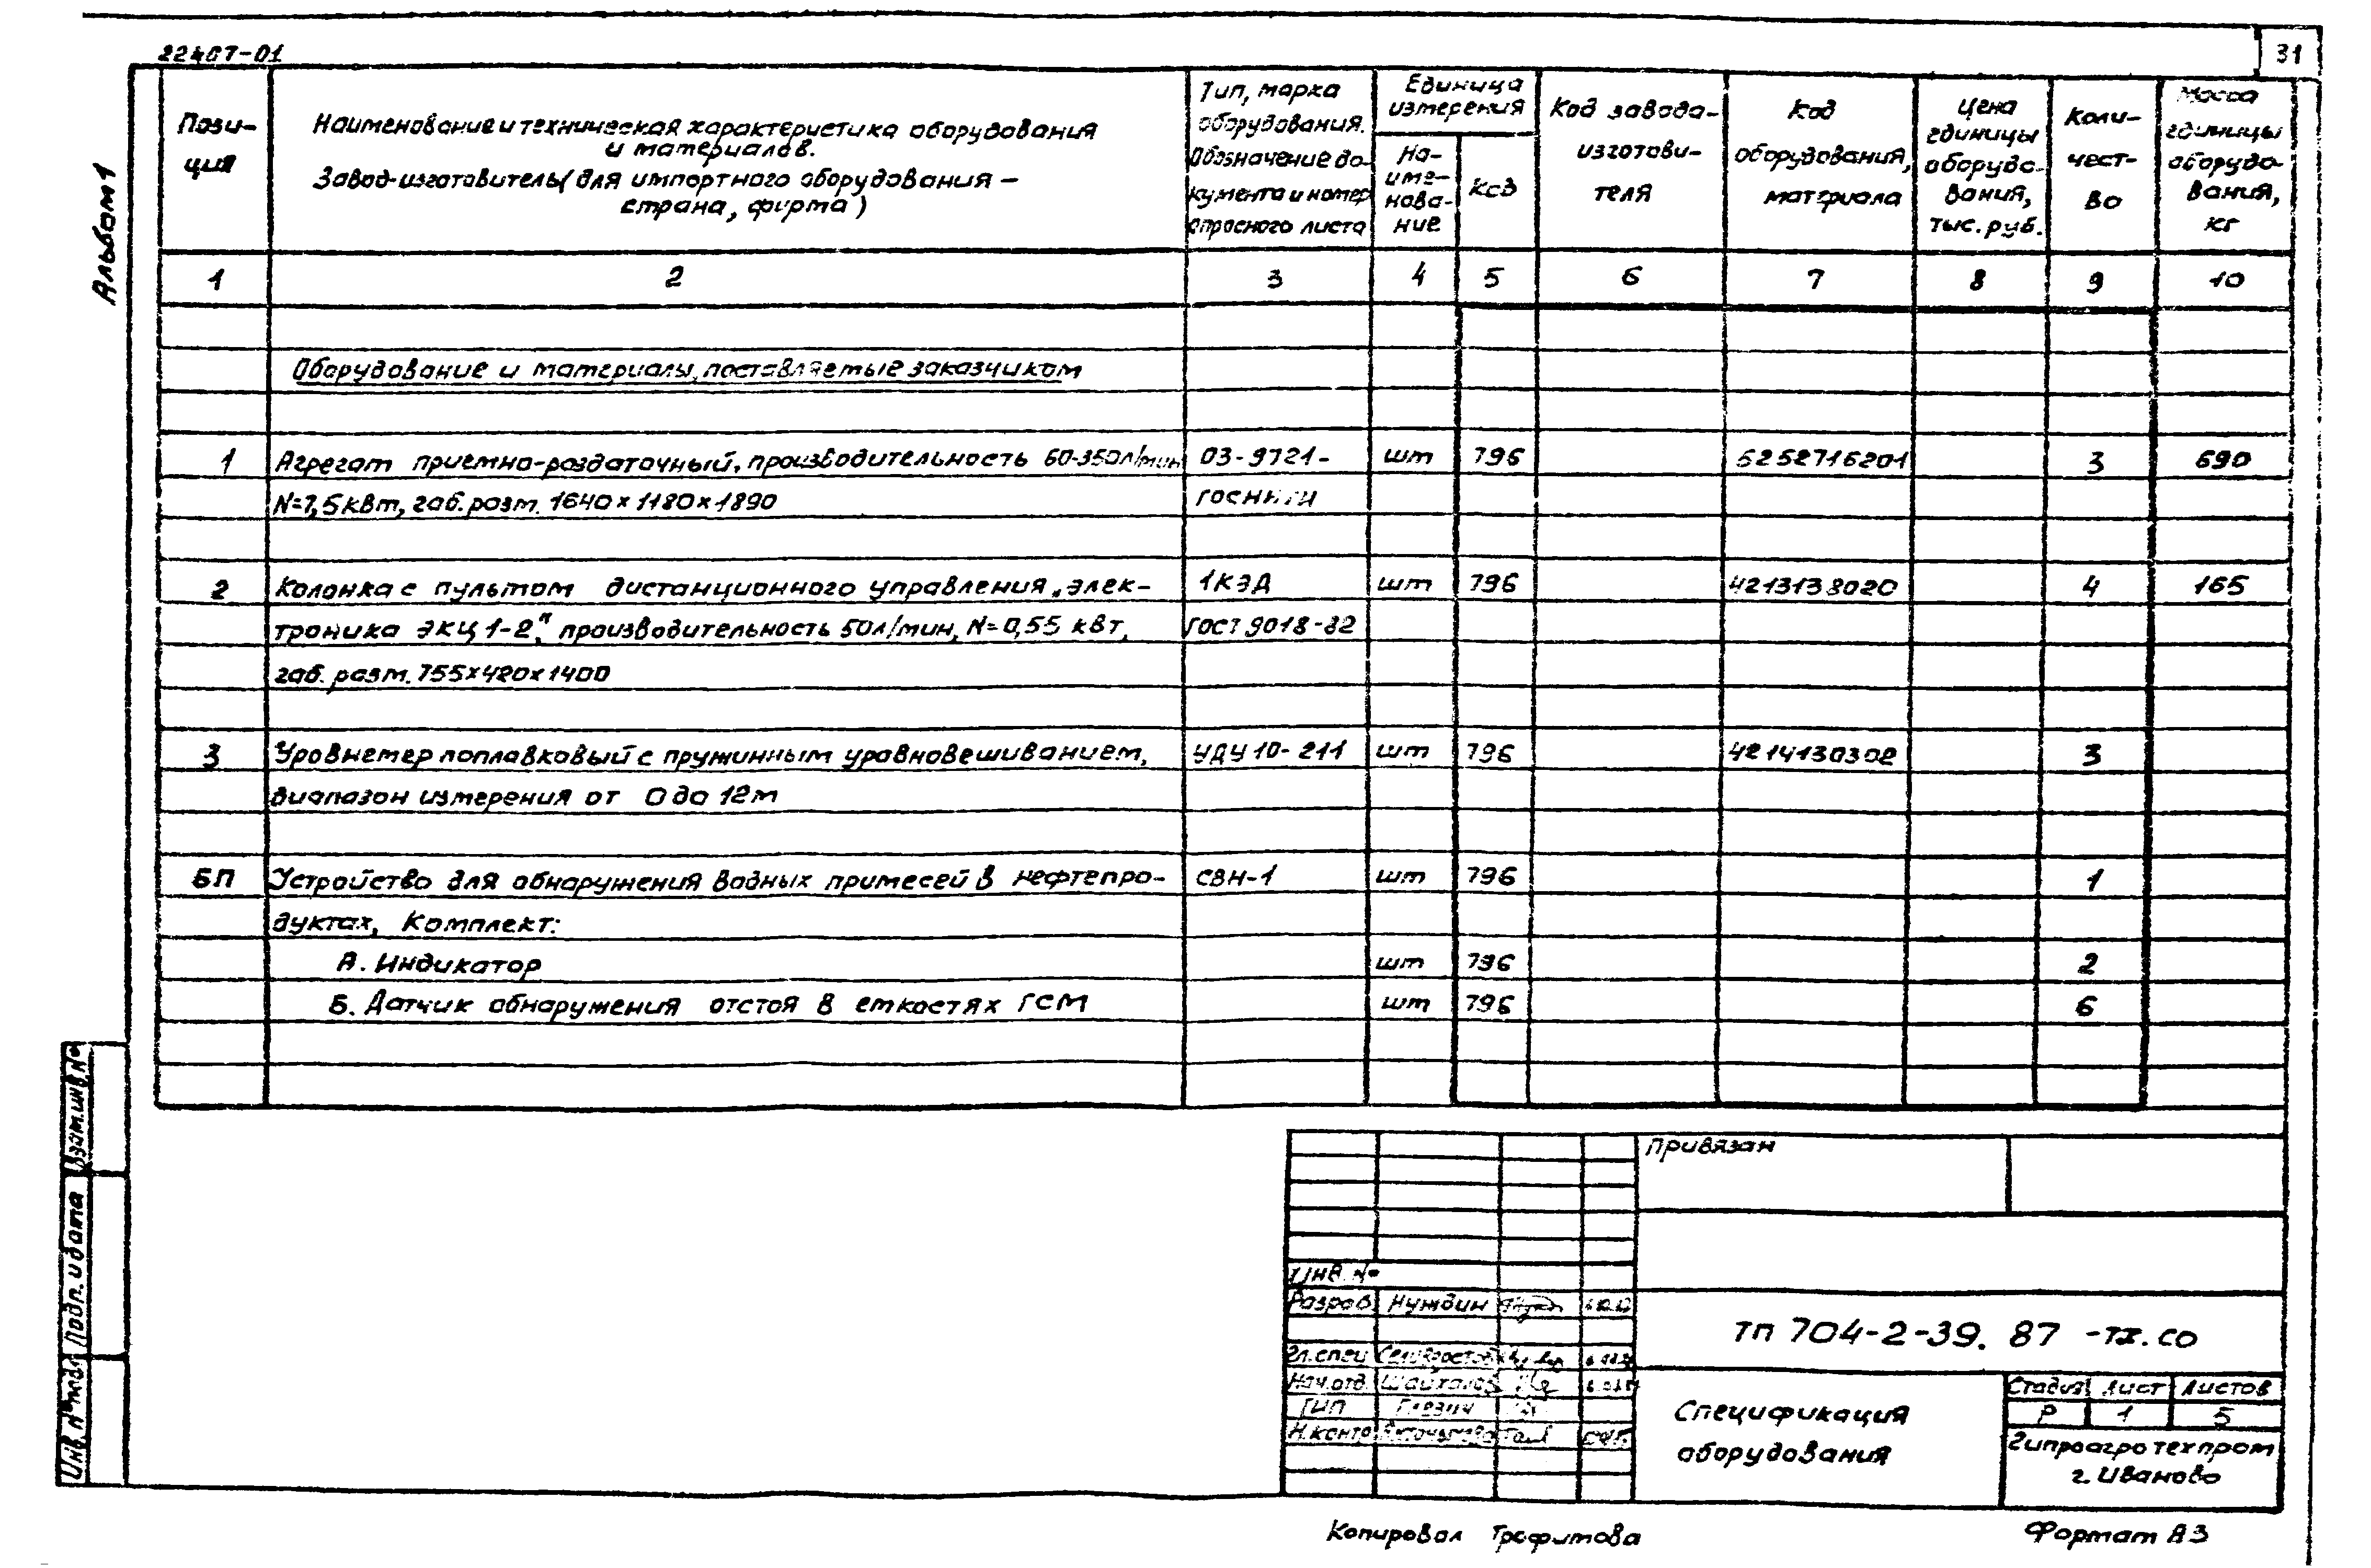 22467-01
31
Альбом 1
Пози-
ция
Наименование и техническая характеристика оборудования
и материалов.
Завод-изготовитель (для импортного оборудования –
страна, фирма)
Тип, марка
оборудования.
Обозначение до-
кумента и номер
опросного листа
Единица
измерения
На-
име-
нова-
ние
Код
Код завода-
изготови-
теля
Код
оборудования,
материала
Цена
единицы
оборудо-
вания,
тыс. руб.
Коли-
чест-
во
Масса
единицы
оборудо-
вания,
кг
1 2 3 4 5 6 7 8 9 10
Оборудование и материалы, поставляемые заказчиком
1 Агрегат приемно-раздаточный, производительность 60-350л/мин 03-9721- шт 796 5252716201 3 690
N=7,5 кВт, габ. разм. 1640×1180×1890 ГОСНИТИ
2 Колонка с пультом дистанционного управления „Элек- 1КЭД шт 796 4213138020 4 165
троника ЭКЦ 1-2", производительность 50л/мин, N=0,55 кВт, ГОСТ 9018-82
габ. разм. 755×420×1400
3 Уровнемер поплавковый с пружинным уравновешиванием, УДУ10-211 шт 796 4214130302 3
диапазон измерения от 0 до 12м
БП Устройство для обнаружения водных примесей в нефтепро- СВН-1 шт 796 1
дуктах, Комплект:
А. Индикатор шт 796 2
Б. Датчик обнаружения отстоя в емкостях ГСМ шт 796 6
Взам. инв. №
Подп. и дата
Инв. № подл
Привязан
Инв. №
Разраб. Нуждин
Гл. спец
Нач. отд. Шайхалов
ГИП Глезин
Н. контр
ТП 704-2-39.87 -ТХ.СО
Спецификация
оборудования
Стадия Лист Листов
Р 1 5
Гипроагротехпром
г. Иваново
Копировал Трофимова
Формат А3